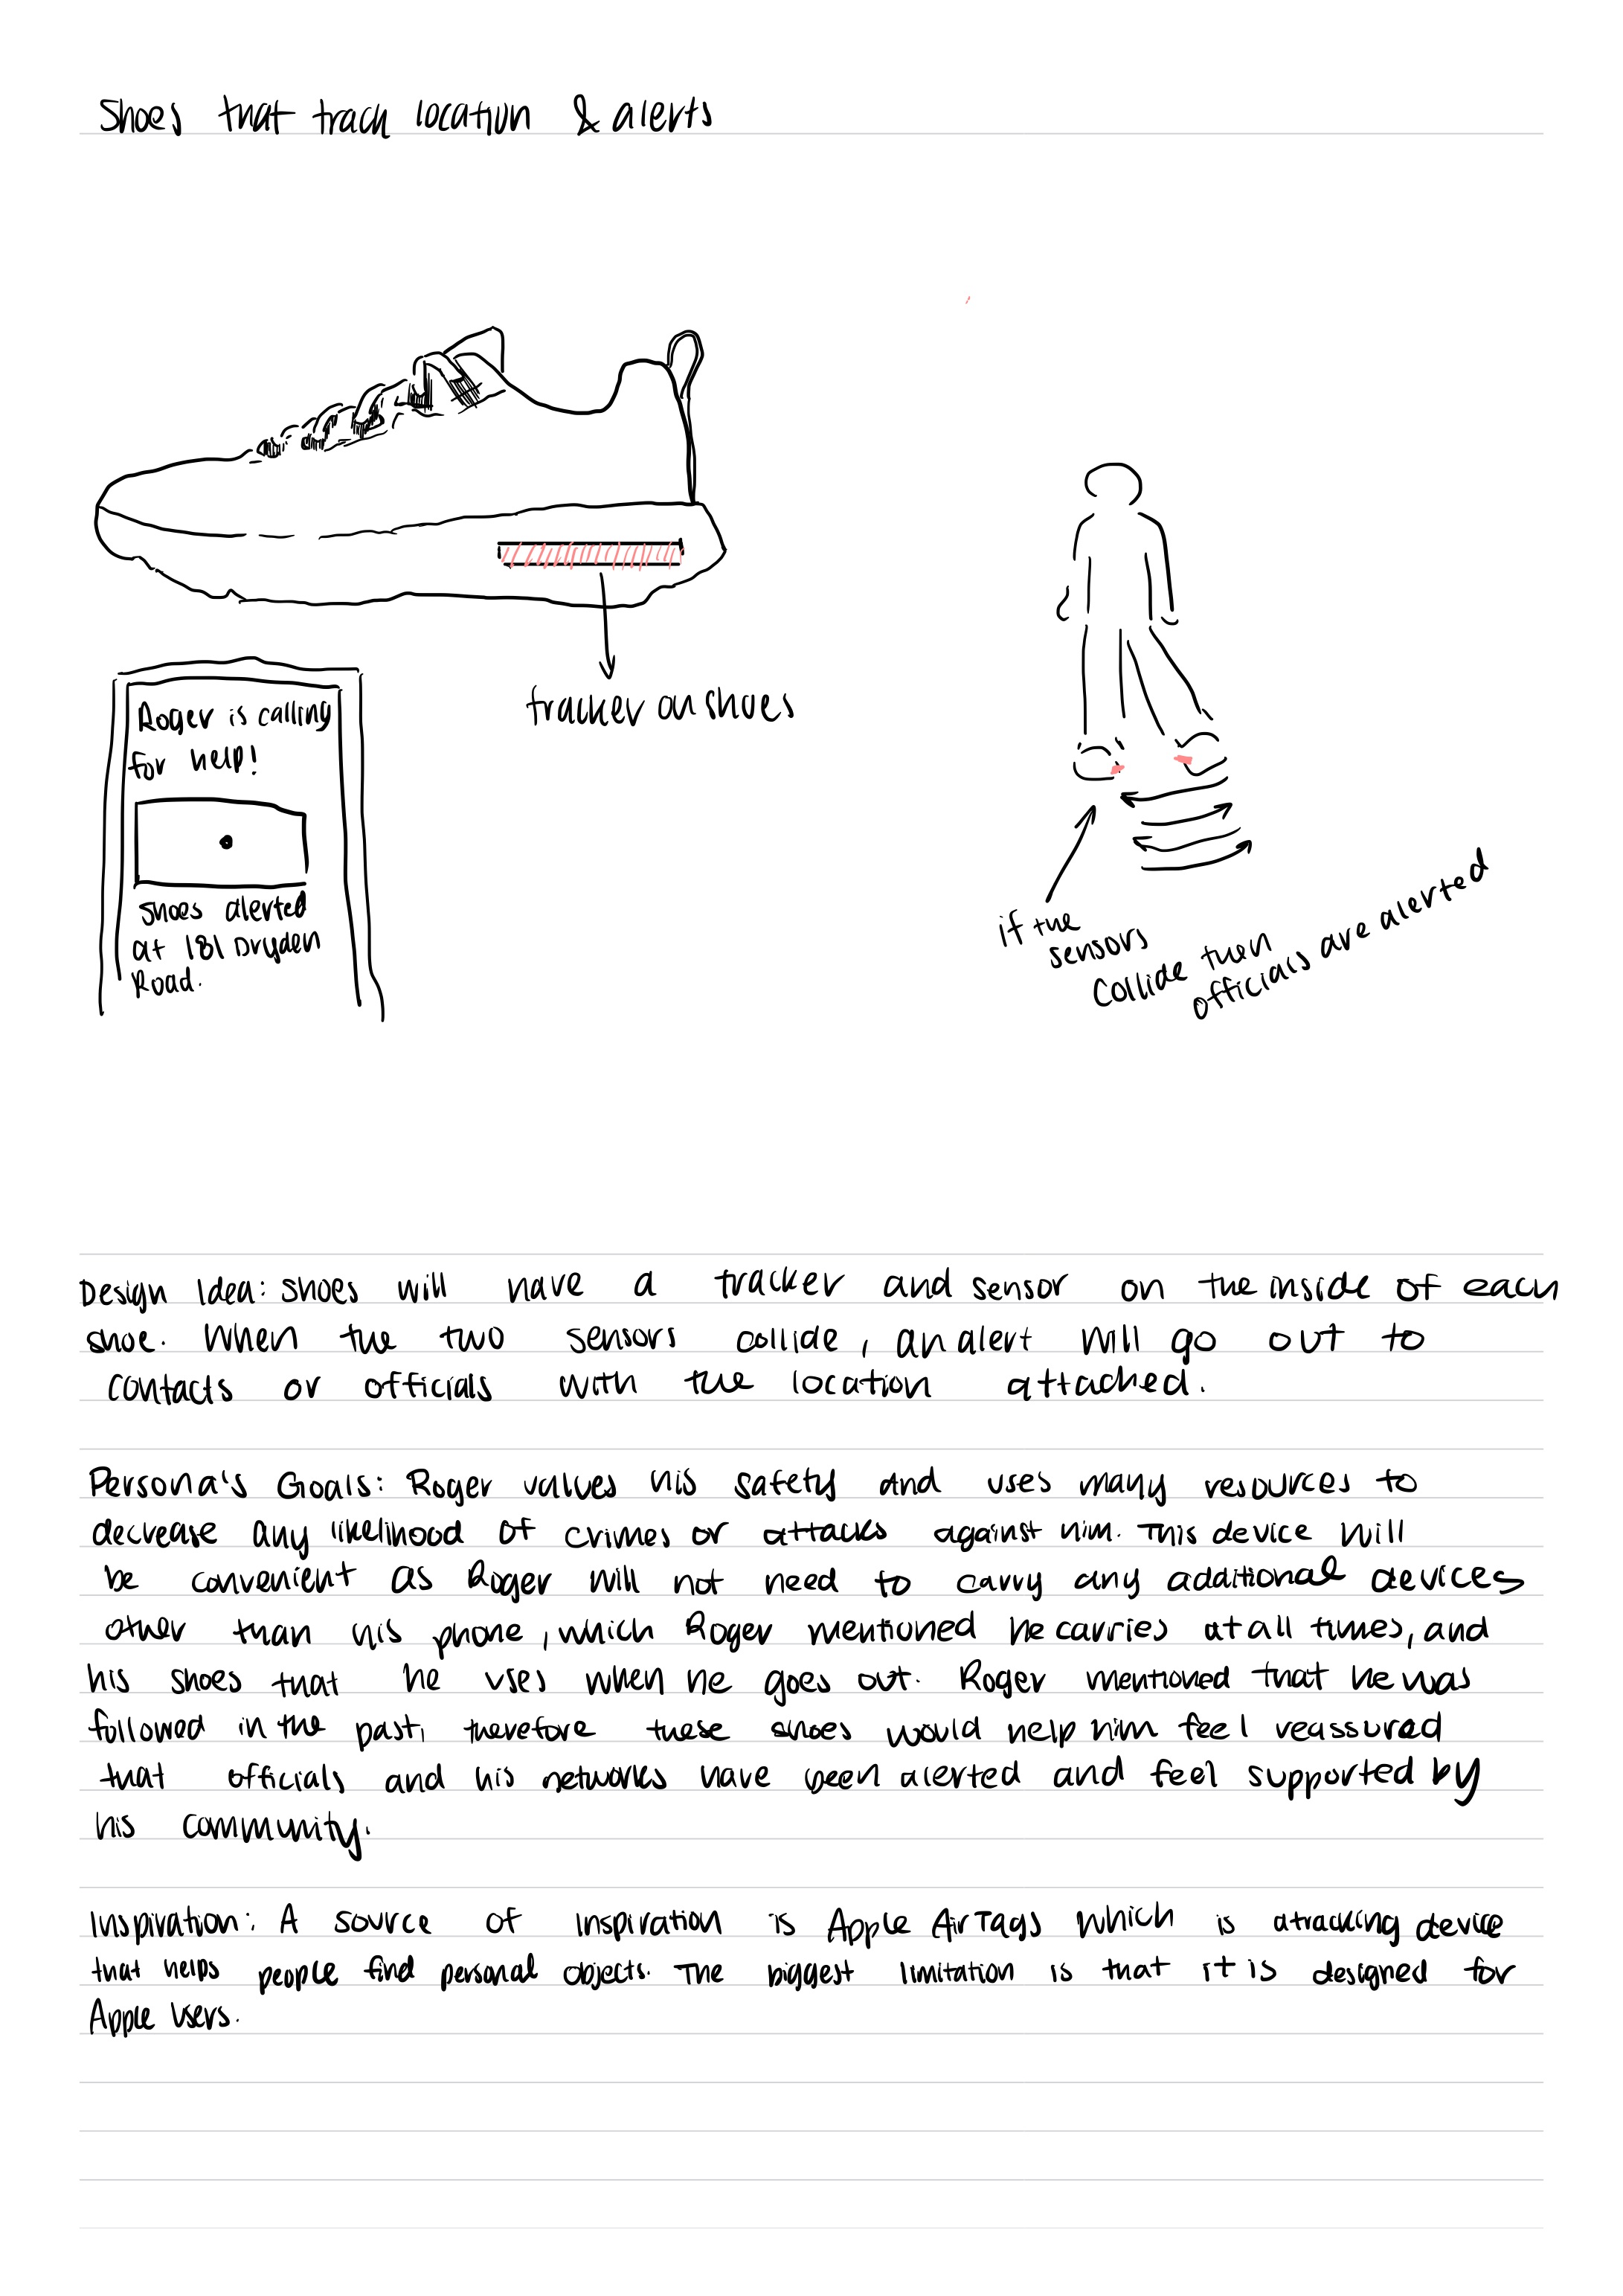 Shoes that track location & alerts
tracker on shoes
Roger is calling
for help!
shoes alerted
at 181 Dryden
Road.
if the
sensors
collide then
officials are alerted
Design Idea: shoes will have a tracker and sensor on the inside of each
shoe. When the two sensors collide, an alert will go out to
contacts or officials with the location attached.
Persona's Goals: Roger values his safety and uses many resources to
decrease any likelihood of crimes or attacks against him. This device will
be convenient as Roger will not need to carry any additional devices
other than his phone, which Roger mentioned he carries at all times, and
his shoes that he uses when he goes out. Roger mentioned that he was
followed in the past, therefore these shoes would help him feel reassured
that officials and his networks have been alerted and feel supported by
his community.
Inspiration: A source of inspiration is Apple AirTags which is a tracking device
that helps people find personal objects. The biggest limitation is that it is designed for
Apple Users.